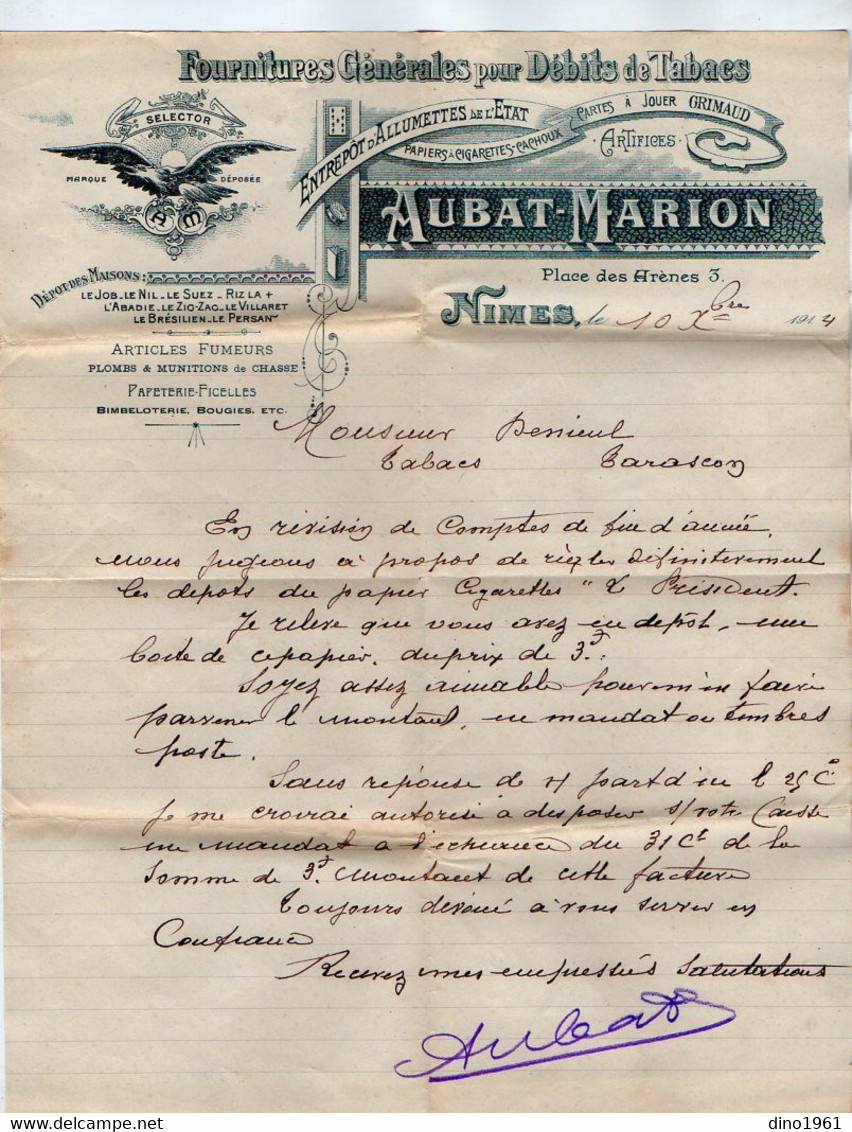 Fournitures Générales pour Débits de Tabacs
SELECTOR
MARQUE DÉPOSÉE
AM
ENTREPÔT D'ALLUMETTES DE L'ETAT
PAPIERS À CIGARETTES-CACHOUX
CARTES À JOUER GRIMAUD
ARTIFICES
AUBAT-MARION
Place des Arènes 3.
DÉPOT DES MAISONS:
LE JOB_LE NIL_LE SUEZ_RIZ LA +
L'ABADIE_LE ZIG-ZAG_LE VILLARET
LE BRÉSILIEN_LE PERSAN
ARTICLES FUMEURS
PLOMBS & MUNITIONS de CHASSE
PAPETERIE-FICELLES
BIMBELOTERIE, BOUGIES, ETC.
NIMES, le 10 Xbre 1914
Monsieur
Tabacs Tarascon
En révision de Comptes de fin d'année,
nous jugeons à propos de règler définitivement
les depots du papier Cigarettes "Le Président.
Je relève que vous avez en depôt, une
boite de ce papier, du prix de 3f:
Soyez assez aimable pour m'en faire
parvenir le montant, en mandat ou timbres
poste.
Sans réponse de v/ part d'ici le 25 Ct
je me croirai autorisé à disposer s/votre Caisse
un mandat à l'echéance du 31 Ct de la
Somme de 3f. montant de cette facture
Toujours dévoué à vous servir en
Confiance
Recevez mes empressées Salutations
Aubat
dino1961